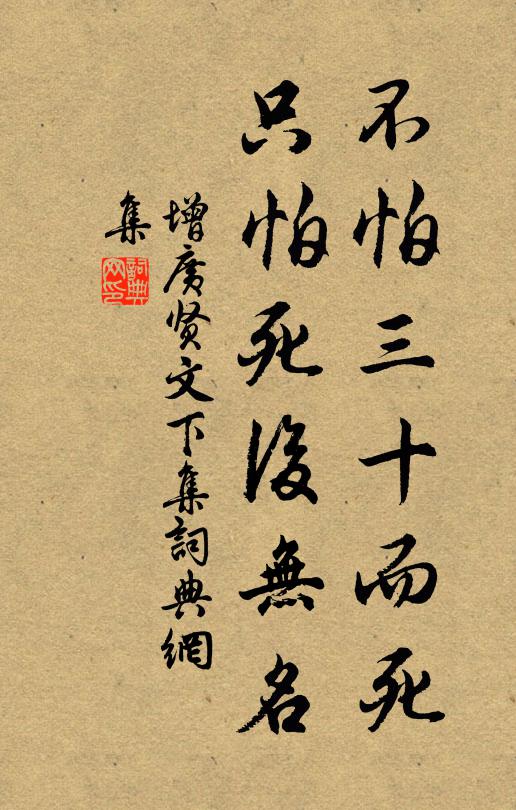 不怕三十而死
只怕死後無名
增广贤文下集詞典網
集
詞典
网印